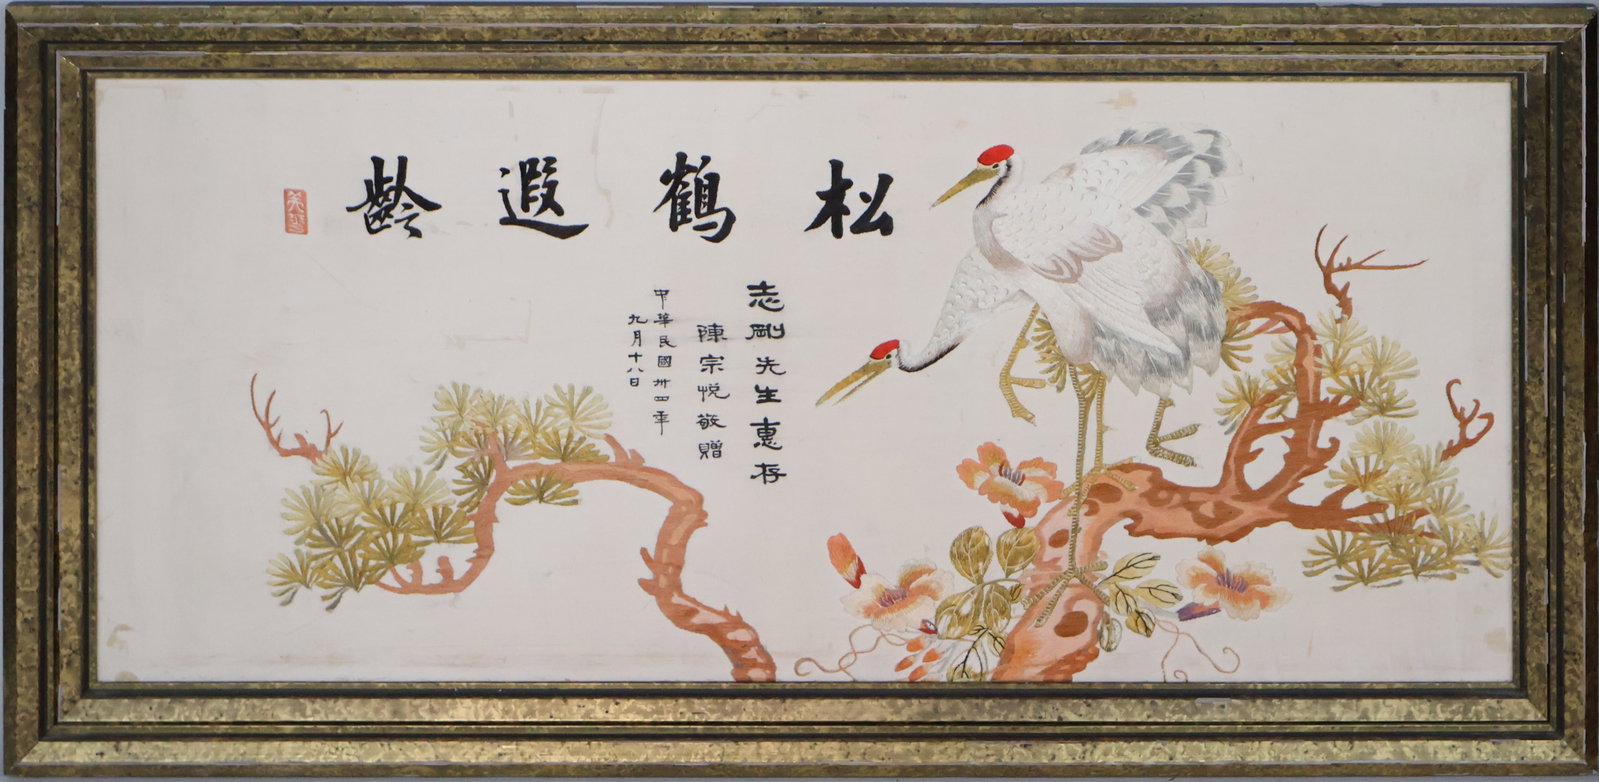 松鶴遐齡
志剛先生惠存
陳宗悅敬贈
中華民國卅四年
九月十八日